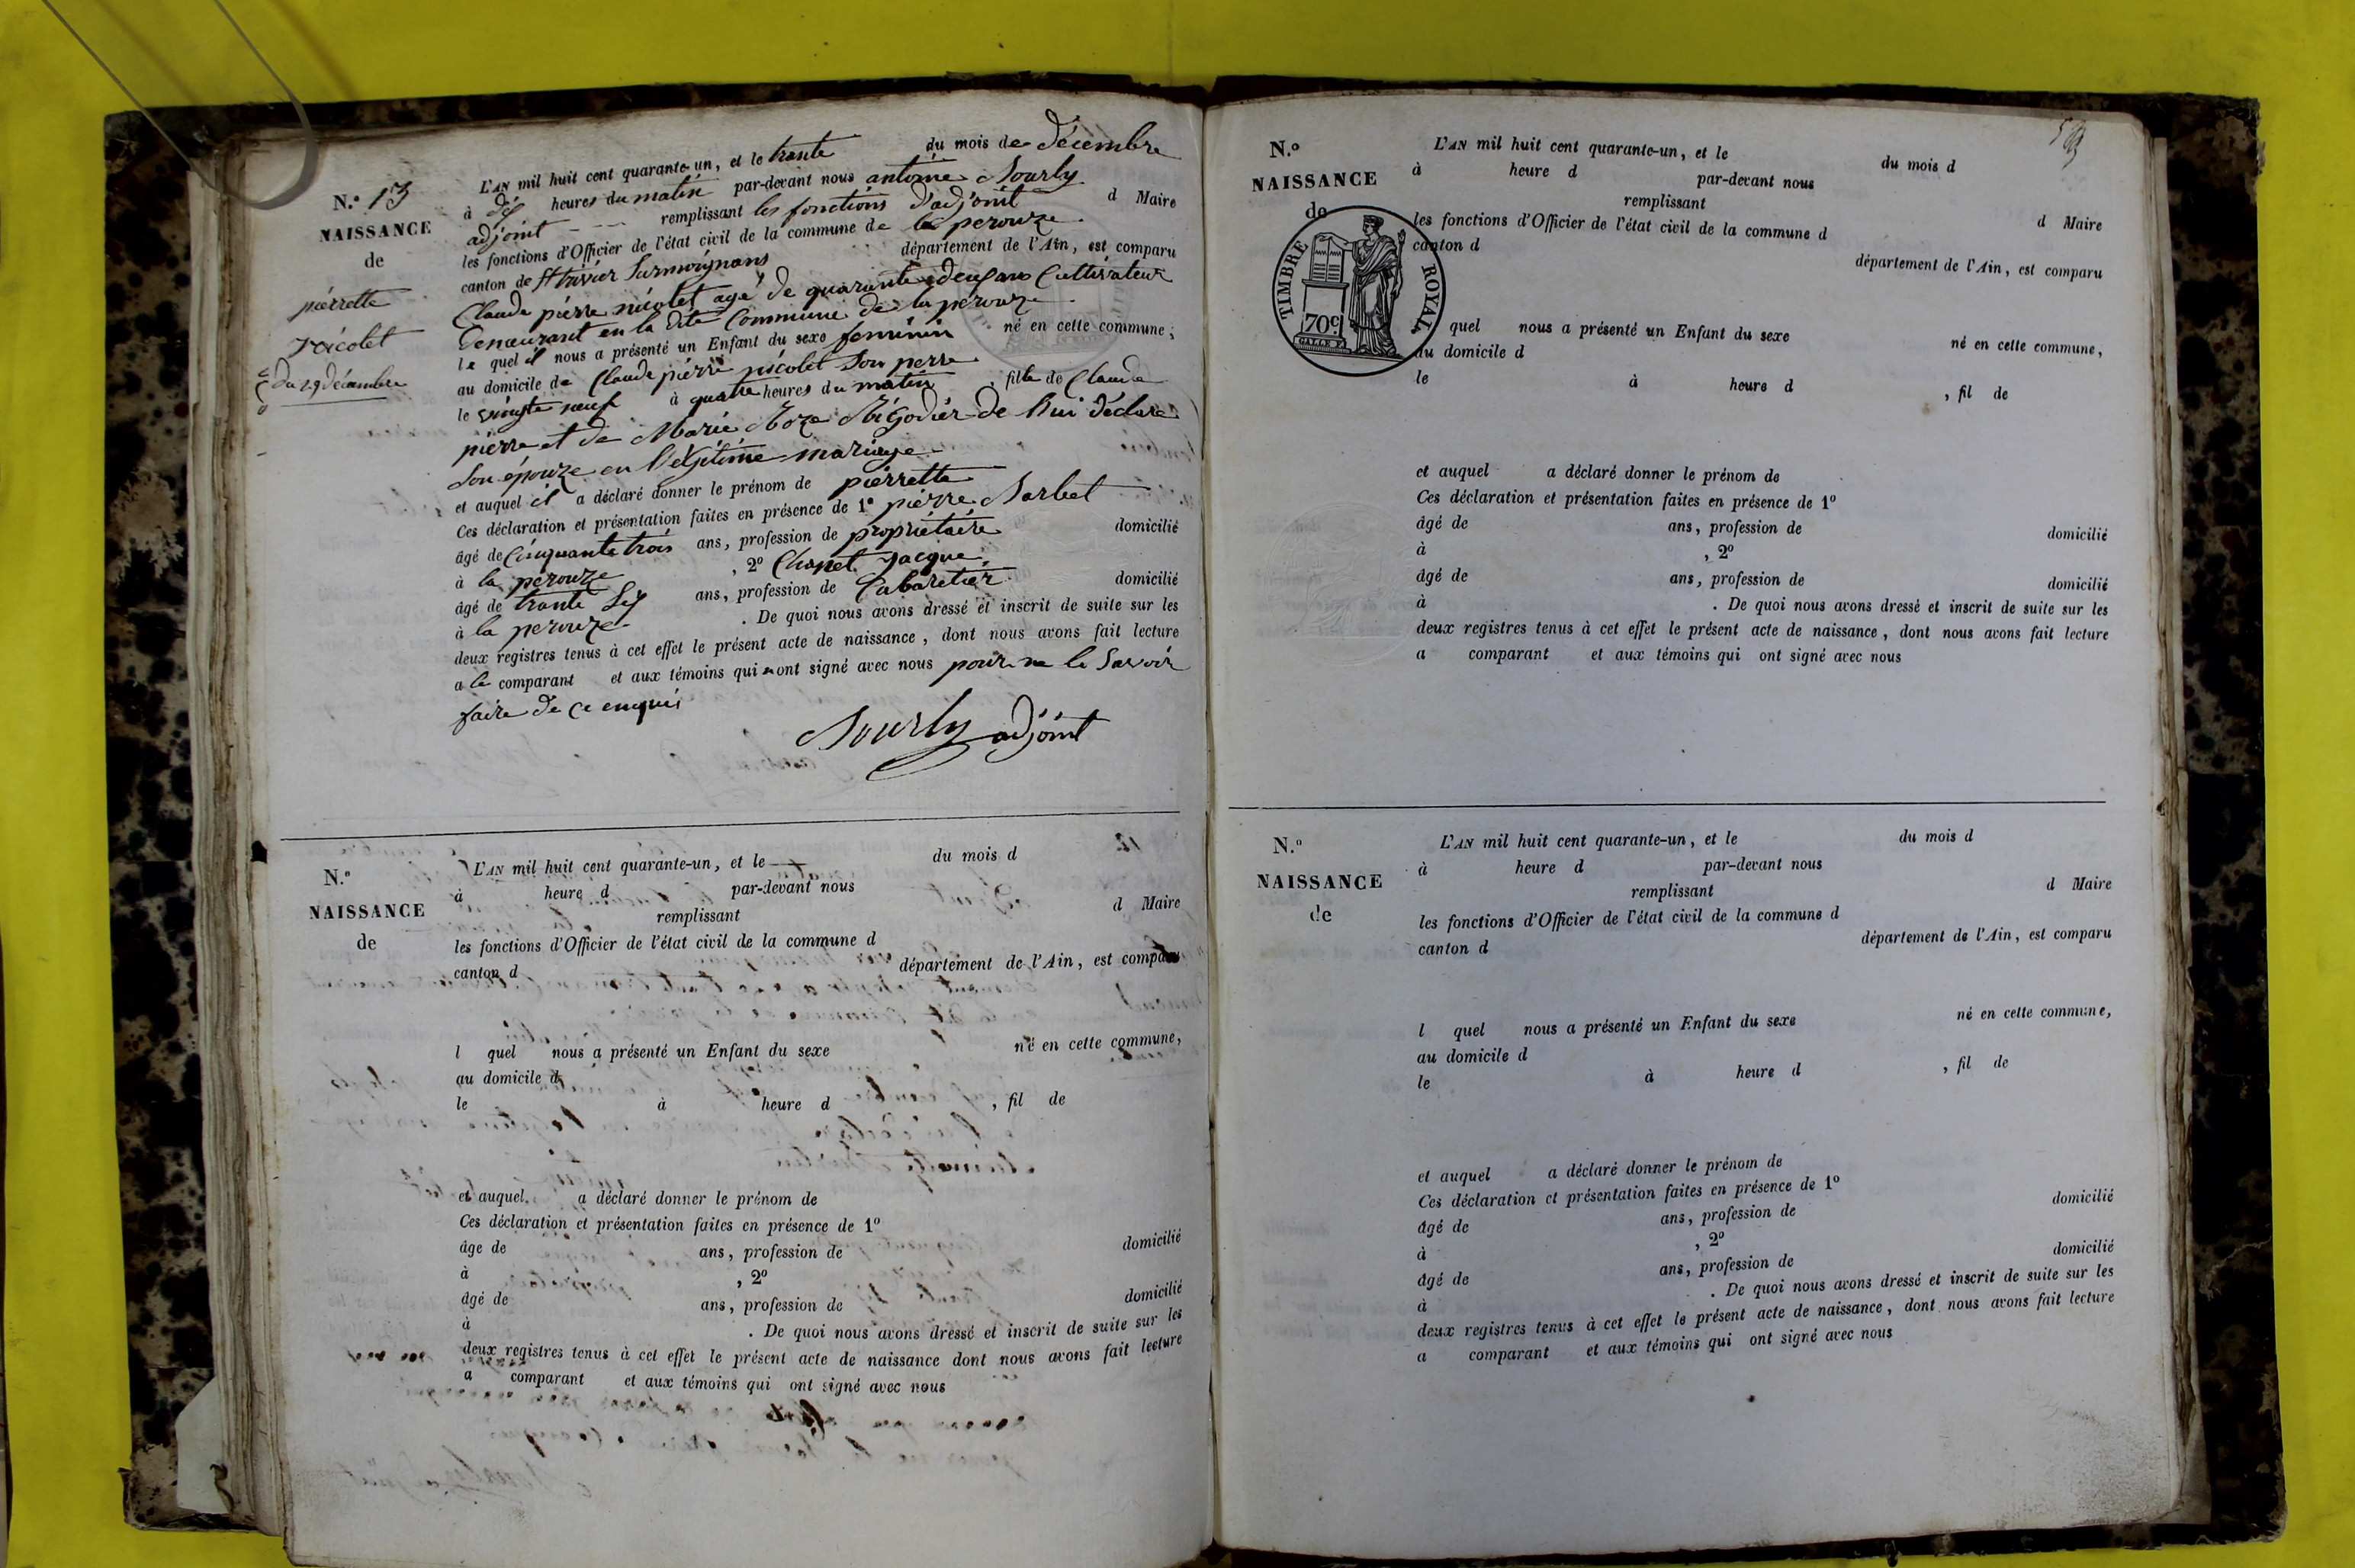 N.° 13
NAISSANCE
de
pierrette
nicolet
du 29 décembre
L'AN mil huit cent quarante-un, et le trante du mois de décembre
à dix heures du matin par-devant nous antoine Sourly
adjoint remplissant les fonctions d'adjoint d Maire
les fonctions d'Officier de l'état civil de la commune de la perouze
canton de St trivier Surmoignans département de l'Ain, est comparu
Claude pierre nicolet agé de quarante deux ans Cultivateur
Demeurant en la dite Commune de la perouze
le quel il nous a présenté un Enfant du sexe feminin né en cette commune,
au domicile de Claude pierre nicolet Son perre
le vingte neuf à quatre heures du matin, fille de Claude
pierre et de Marie Roze Migodier de lui déclare
Son épouze en légitime mariage
et auquel il a déclaré donner le prénom de pierrette
Ces déclaration et présentation faites en présence de 1° pierre Sarbet
âgé de Cinquante trois ans, profession de propriétaire domicilié
à la perouze, 2° Chanet Jacque
âgé de trante Six ans, profession de Cabaretier domicilié
à la perouze. De quoi nous avons dressé et inscrit de suite sur les
deux registres tenus à cet effet le présent acte de naissance, dont nous avons fait lecture
a le comparant et aux témoins qui n ont signé avec nous pour ne le Savoir
faire de ce enquis
Sourly adjoint
N.°
NAISSANCE
de
L'AN mil huit cent quarante-un, et le du mois d
à heure d par-devant nous
remplissant d Maire
les fonctions d'Officier de l'état civil de la commune d
canton d département de l'Ain, est comparu
l quel nous a présenté un Enfant du sexe né en cette commune,
au domicile d
le à heure d , fil de
et auquel a déclaré donner le prénom de
Ces déclaration et présentation faites en présence de 1°
âge de ans, profession de domicilié
à , 2°
âgé de ans, profession de domicilié
à . De quoi nous avons dressé et inscrit de suite sur les
deux registres tenus à cet effet le présent acte de naissance dont nous avons fait lecture
a comparant et aux témoins qui ont signé avec nous
N.°
NAISSANCE
de
TIMBRE ROYAL
70c
L'AN mil huit cent quarante-un, et le du mois d
à heure d par-devant nous
remplissant d Maire
les fonctions d'Officier de l'état civil de la commune d
canton d département de l'Ain, est comparu
quel nous a présenté un Enfant du sexe né en cette commune,
au domicile d
le à heure d , fil de
et auquel a déclaré donner le prénom de
Ces déclaration et présentation faites en présence de 1°
âgé de ans, profession de domicilié
à , 2°
âgé de ans, profession de domicilié
à . De quoi nous avons dressé et inscrit de suite sur les
deux registres tenus à cet effet le présent acte de naissance, dont nous avons fait lecture
a comparant et aux témoins qui ont signé avec nous
N.°
NAISSANCE
de
L'AN mil huit cent quarante-un, et le du mois d
à heure d par-devant nous
remplissant d Maire
les fonctions d'Officier de l'état civil de la commune d
canton d département de l'Ain, est comparu
l quel nous a présenté un Enfant du sexe né en cette commune,
au domicile d
le à heure d , fil de
et auquel a déclaré donner le prénom de
Ces déclaration et présentation faites en présence de 1°
âgé de ans, profession de domicilié
à , 2°
âgé de ans, profession de domicilié
à . De quoi nous avons dressé et inscrit de suite sur les
deux registres tenus à cet effet le présent acte de naissance, dont nous avons fait lecture
a comparant et aux témoins qui ont signé avec nous